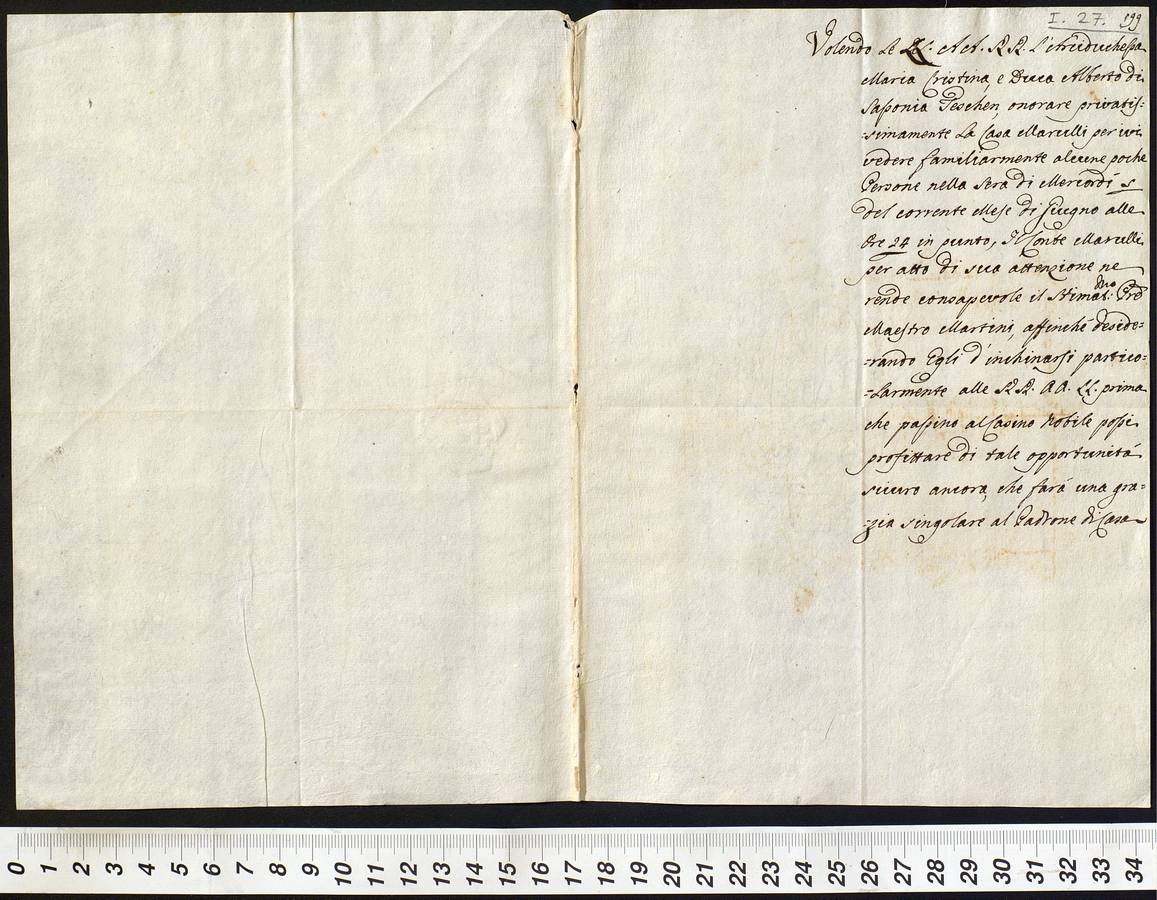 I. 27. 199
Volendo Le LL. AA. RR. L'Arciduchessa
Maria Cristina, e Duca Alberto di
Sassonia Teschen, onorare privatis=
=simamente La Casa Marulli per ivi
vedere familiarmente alcune poche
Persone nella Sera di Mercordì 5
del corrente Mese di Giugno alle
Ore 24 in punto, Il Conte Marulli
per atto di sua attenzione ne
rende consapevole il Stimatmo Pre
Maestro Martini, affinché deside=
=rando Egli d'inchinarsi partico=
=Larmente alle RR. AA. LL. prima
che passino al Casino Nobile possi
profittare di tale opportunità
sicuro ancora, che farà una gra=
=zia singolare al Padrone di Casa
0 1 2 3 4 5 6 7 8 9 10 11 12 13 14 15 16 17 18 19 20 21 22 23 24 25 26 27 28 29 30 31 32 33 34